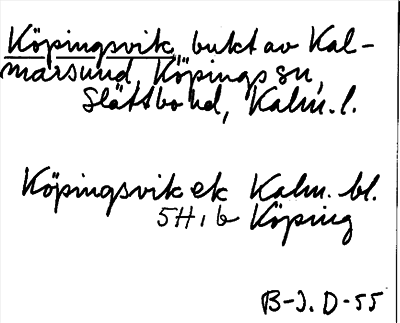 Köpingsvik, bukt av Kal-
marsund, Köpings sn,
Slättbo hd, Kalm. l.
Köpingsvik ek Kalm. bl.
5H, b Köping
B-J. D-55